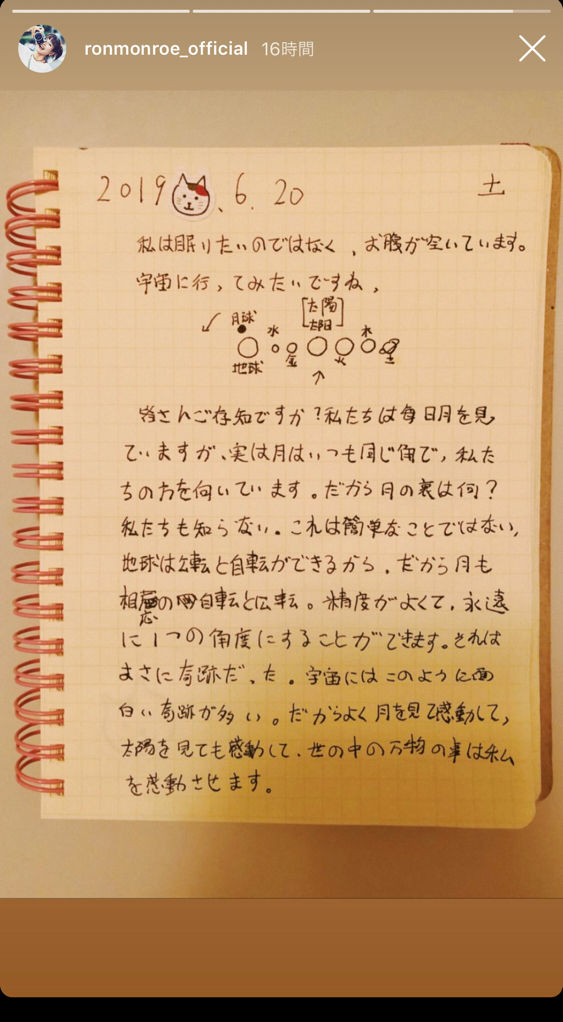 ronmonroe_official 16時間
2019.6.20 土
私は眠りたいのではなく、お腹が空いています。
宇宙に行ってみたいですね、
[太陽]
月球 水 木
地球 金 火 土
皆さんご存知ですか？私たちは毎日月を見
ていますが、実は月はいつも同じ角で、私た
ちの方を向いています。だから月の裏は何？
私たちも知らない。これは簡単なことではない、
地球は公転と自転ができるから、だから月も
相応の自転と公転。精度がよくて、永遠
に1つの角度にすることができます。それは
まさに奇跡だった。宇宙にはこのように面
白い奇跡が多い。だからよく月を見て感動して、
太陽を見ても感動して、世の中の万物の事は私
を感動させます。